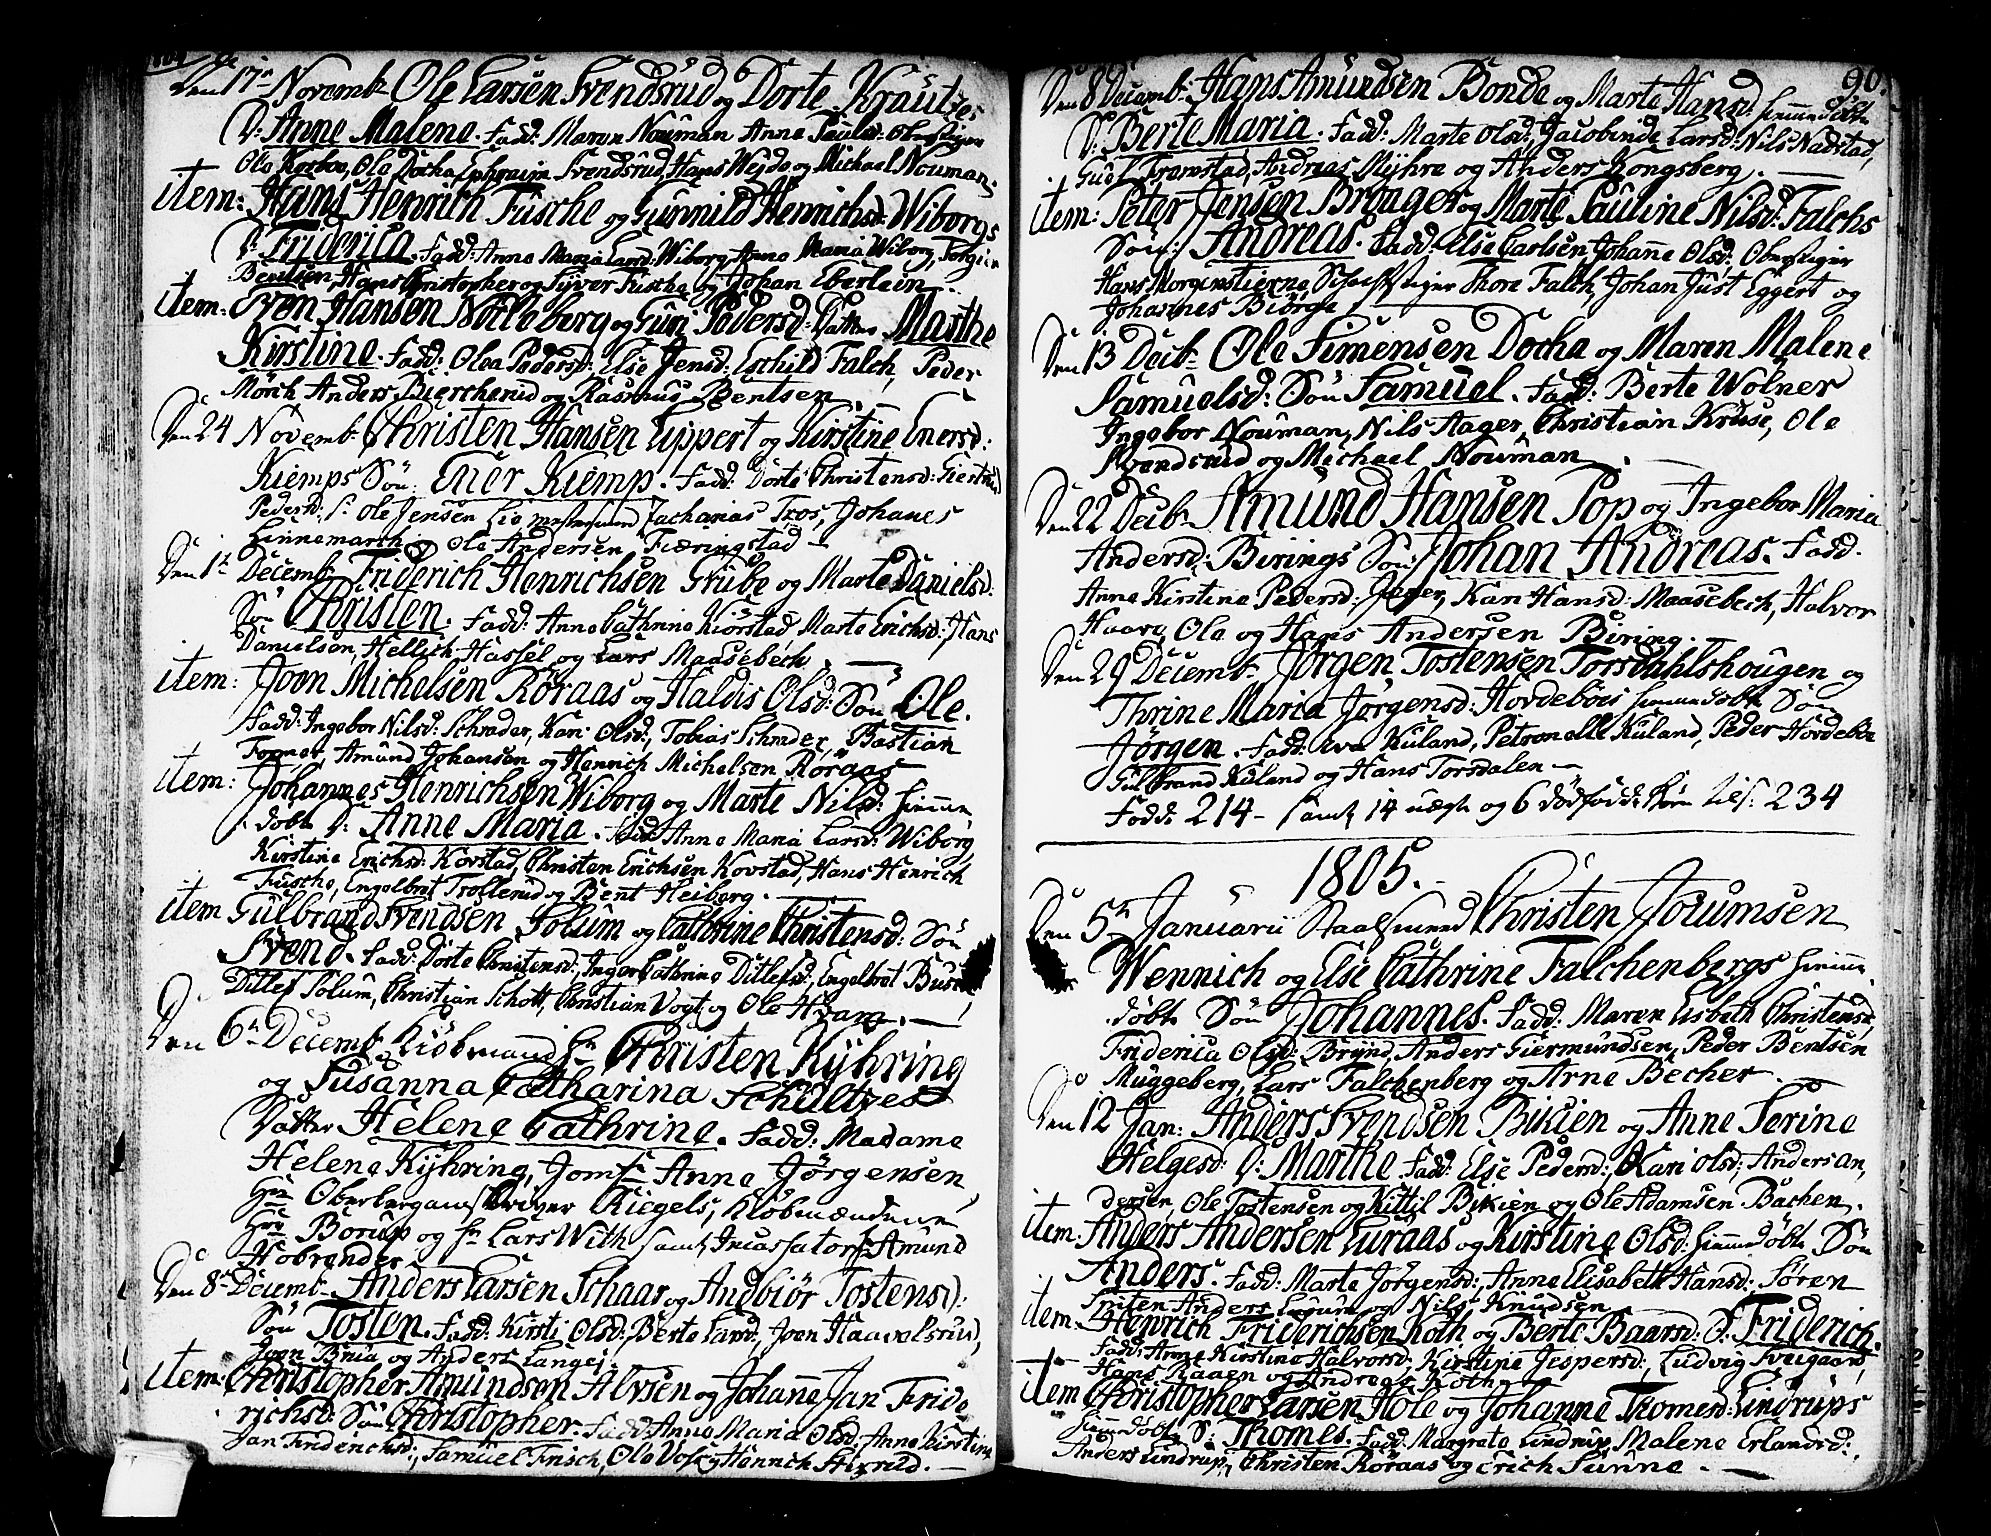 1804
Den 17de Novemb: Ole Larsen Svendsrud og Dorte Krautzes
D: Anne Malene. Fadd: Maren Nouman Anne Pauls: Oberstiger
Ole Korboe, Ole Docka, Ephraim Svendsrud, Hans Weyde og Michael Nouman.
item: Hans Henrich Fusche og Gunnild Henrichsd: Wiborgs
D: Friderica. Fadd: Anne Maria Larsd: Wiborg, Anne Maria Wiborg, Torgier
Bentsen, Hans Christopher og Syver Fusche og Johan Eberlein.
item: Even Hansen Nörleberg og Guri Pedersd: Datter Marthe
Kirstine. Fadd: Olea Pedersd: Else Jensd: Eschild Falch, Peder
Mörch Anders Bierchenid og Rasmus Bentsen.
Den 24 Novemb: Christen Hansen Lippert og Kirstine Enersd:
Kiemps Sön: Ener Kiemp. Fadd: Dorte Christensd: Giertrud
Pedersd: Ole Jensen Lie, Zacharias Tros, Johanes
Linnemarch og Ole Andersen Fieringstad
Den 1te Decemb: Friderich Henrichsen Grube og Marte Danielsd:
Sön Christen. Fadd: Anne Cathrine Kiörstad Marte Erichsd: Hans
Danielsen, Hellich Hassel og Lars Maasebech.
item: Joen Michelsen Röraas og Haldis Olsd: Sön Ole.
Fadd: Ingebor Nilsd: Schrader, Kari Olsd:, Tobias Schrader, Bastian
Fogner, Amund Johansen og Henrich Michelsen Röraas
item: Johannes Henrichsen Wiborg og Marte Nilsd: hiemme
döbte D: Anne Maria. Fadd: Anne Maria Larsd: Wiborg,
Kirstine Erichsd: Kovstad, Christen Erichsen Kovstad, Hans Henrich
Fusche, Engelbret Trollerud og Bent Heiberg.
item Gulbrand Svendsen Solum og Cathrine Christensd: Sön
Svend. Fadd: Dorte Christensd:, Inger Cathrine Ditlefsd:, Engelbret Busch
Ditlef Solum, Christian Schott, Christian Vogt og Ole Hvam.
Den 6te Decemb: Kiöbmand Hr Christen Kyhring
og Susanna Catharina Schultzes
Datter Helene Cathrine. Fadd: Madame
Helene Kyhring, Jomfr Anne Jörgensen,
Hrr Oberbergamtskriver Riegels, Kiöbmændene
Hrr Borup og Hr Lars With samt Incassator Hr Amund
Hobrander
Den 8de Decemb: Anders Larsen Schaar og Andbiör Tostensd:
Sön Tosten. Fadd: Kirsti Olsd: Berte Larsd:, Joen Haavalsrud,
Joen Bria og Anders Langej.
item: Christopher Amundsen Alvsen og Johanne Jan Fride
richsd: Sön Christopher. Fadd: Anne Maria Olsd: Anne Kirstine
Jan Friderichsd:, Samuel Frisch, Ole Vos og Henrich Strud.
90.
Den 8 Decemb: Hans Amundsen Bonde og Marte Hansd: hiemmedöbte
D: Berte Maria. Fadd: Marte Olsd: Jacobinde Larsd: Nils Nadstad,
Gul: Tramstad, Andreas Myhre og Anders Kongsberg.
item: Peter Jensen Braager og Marte Pauline Nilsd: Falchs
Sön: Andreas. Fadd: Else Carlsen, Johanne Olsd: Oberstiger
Hans Morgenstierne, Schachtstiger Thore Falch, Johan Just Eggert og
Johannes Biörge
Den 13 Decb: Ole Simensen Docka og Maren Malene
Samuelsd: Sön Samuel. Fadd: Berte Wolner
Ingebor Nouman, Nils Aager, Christian Kruse, Ole
Svendsrud og Michael Nouman.
Den 22 Decb: Amund Hansen Pop og Ingebor Maria
Andersd: Birings Sön: Johan Andreas. Fadd:
Anne Kirstine Pedersd: Jeger, Kari Hansd: Maasebech, Halvor
Haare, Ole og Hans Andersen Biring.
Den 29 Decemb: Jörgen Tostensen Torsdahlshougen og
Thrine Maria Jörgensd: Hordebös hiemmedöbte Sön
Jörgen. Fadd: Eva Kuland, Petronelle Kuland, Peder Hordeböe
Gulbrand Kuland og Hans Torsdalen
Födde 214 samt 14 uægte og 6 dödfödde börn tils: 234
1805.
Den 5te Januarii Staalsmed Christen Joumsen
Wennich og Else Cathrine Falchenbergs hiemme
döbte Sön Johannes. Fadd: Maren Lisbeth Christensd:
Friderica Olsd: Brynd, Anders Giermundsen, Peder Bentsen
Muggeberg, Lars Falchenberg og Arne Becher.
Den 12 Jan: Anders Svendsen Bikien og Anne Serine
Helgesd: D: Marthe Fadd: Else Pedersd:, Kari Olsd:, Anders An,
dersen, Ole Tostensen og Kittil Bikien og Ole Adamsen Bachen.
item Anders Andersen Luraas og Kirstine Olsd: hiemmedöbte Sön
Anders. Fadd: Marte Jörgensd: Anne Elisabeth Hansd: Sören
Sriten Anders Lurum og Nils Knudsen
item: Henrich Friderichsen Koth og Berte Baarsd: S: Friderich.
Fadd: Anne Kirstine Halvorsd: Kirstine Jespersd:, Ludvig Sveigaard,
Hans Raaen og Andreas Kothe
item Christopher Larsen Hole og Johanne Thomesd: Lindrups
hiemdöbte S: Thomes. Fadd: Margrete Lindrup, Malene Erlandsd:
Anders Lindrup, Christen Röraas og Erich Sunne.